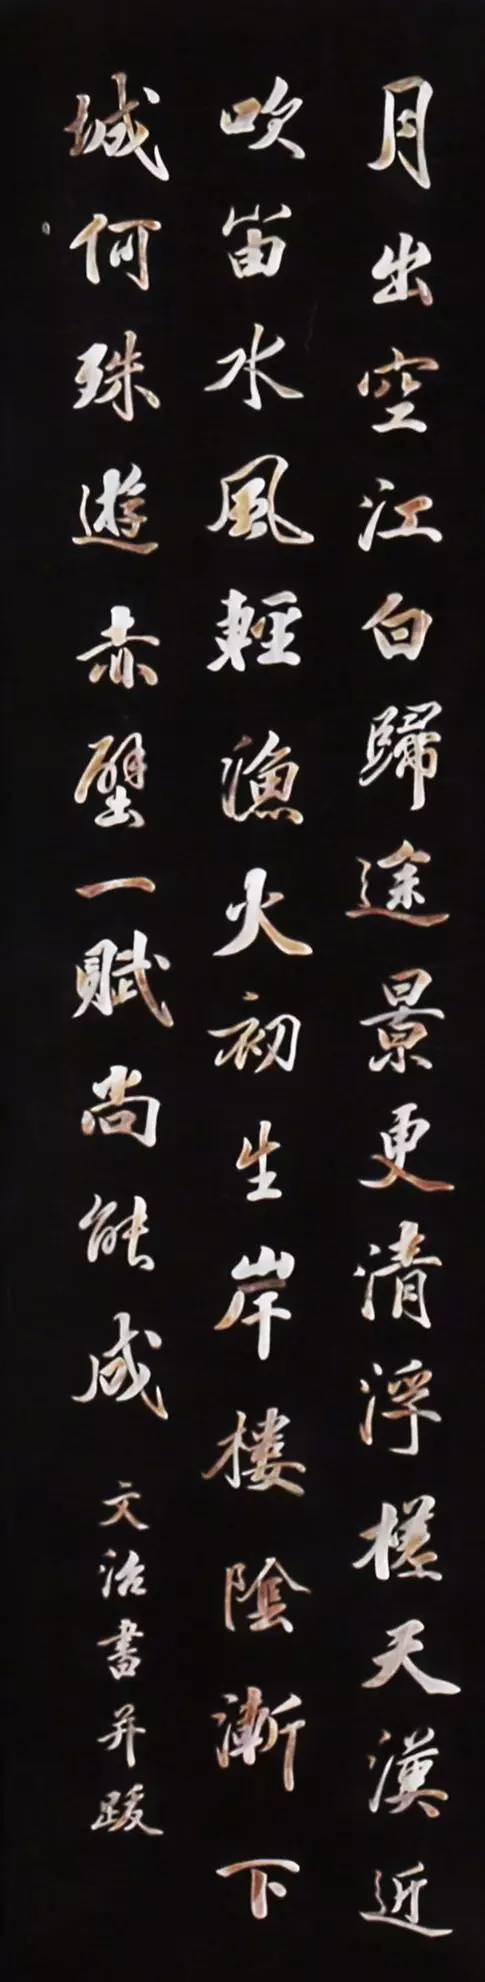 月出空江白歸途景更清浮槎天漢近
吹笛水風輕漁火初生岸樓陰漸下
城何殊遊赤壁一賦尚能成
文治書并跋